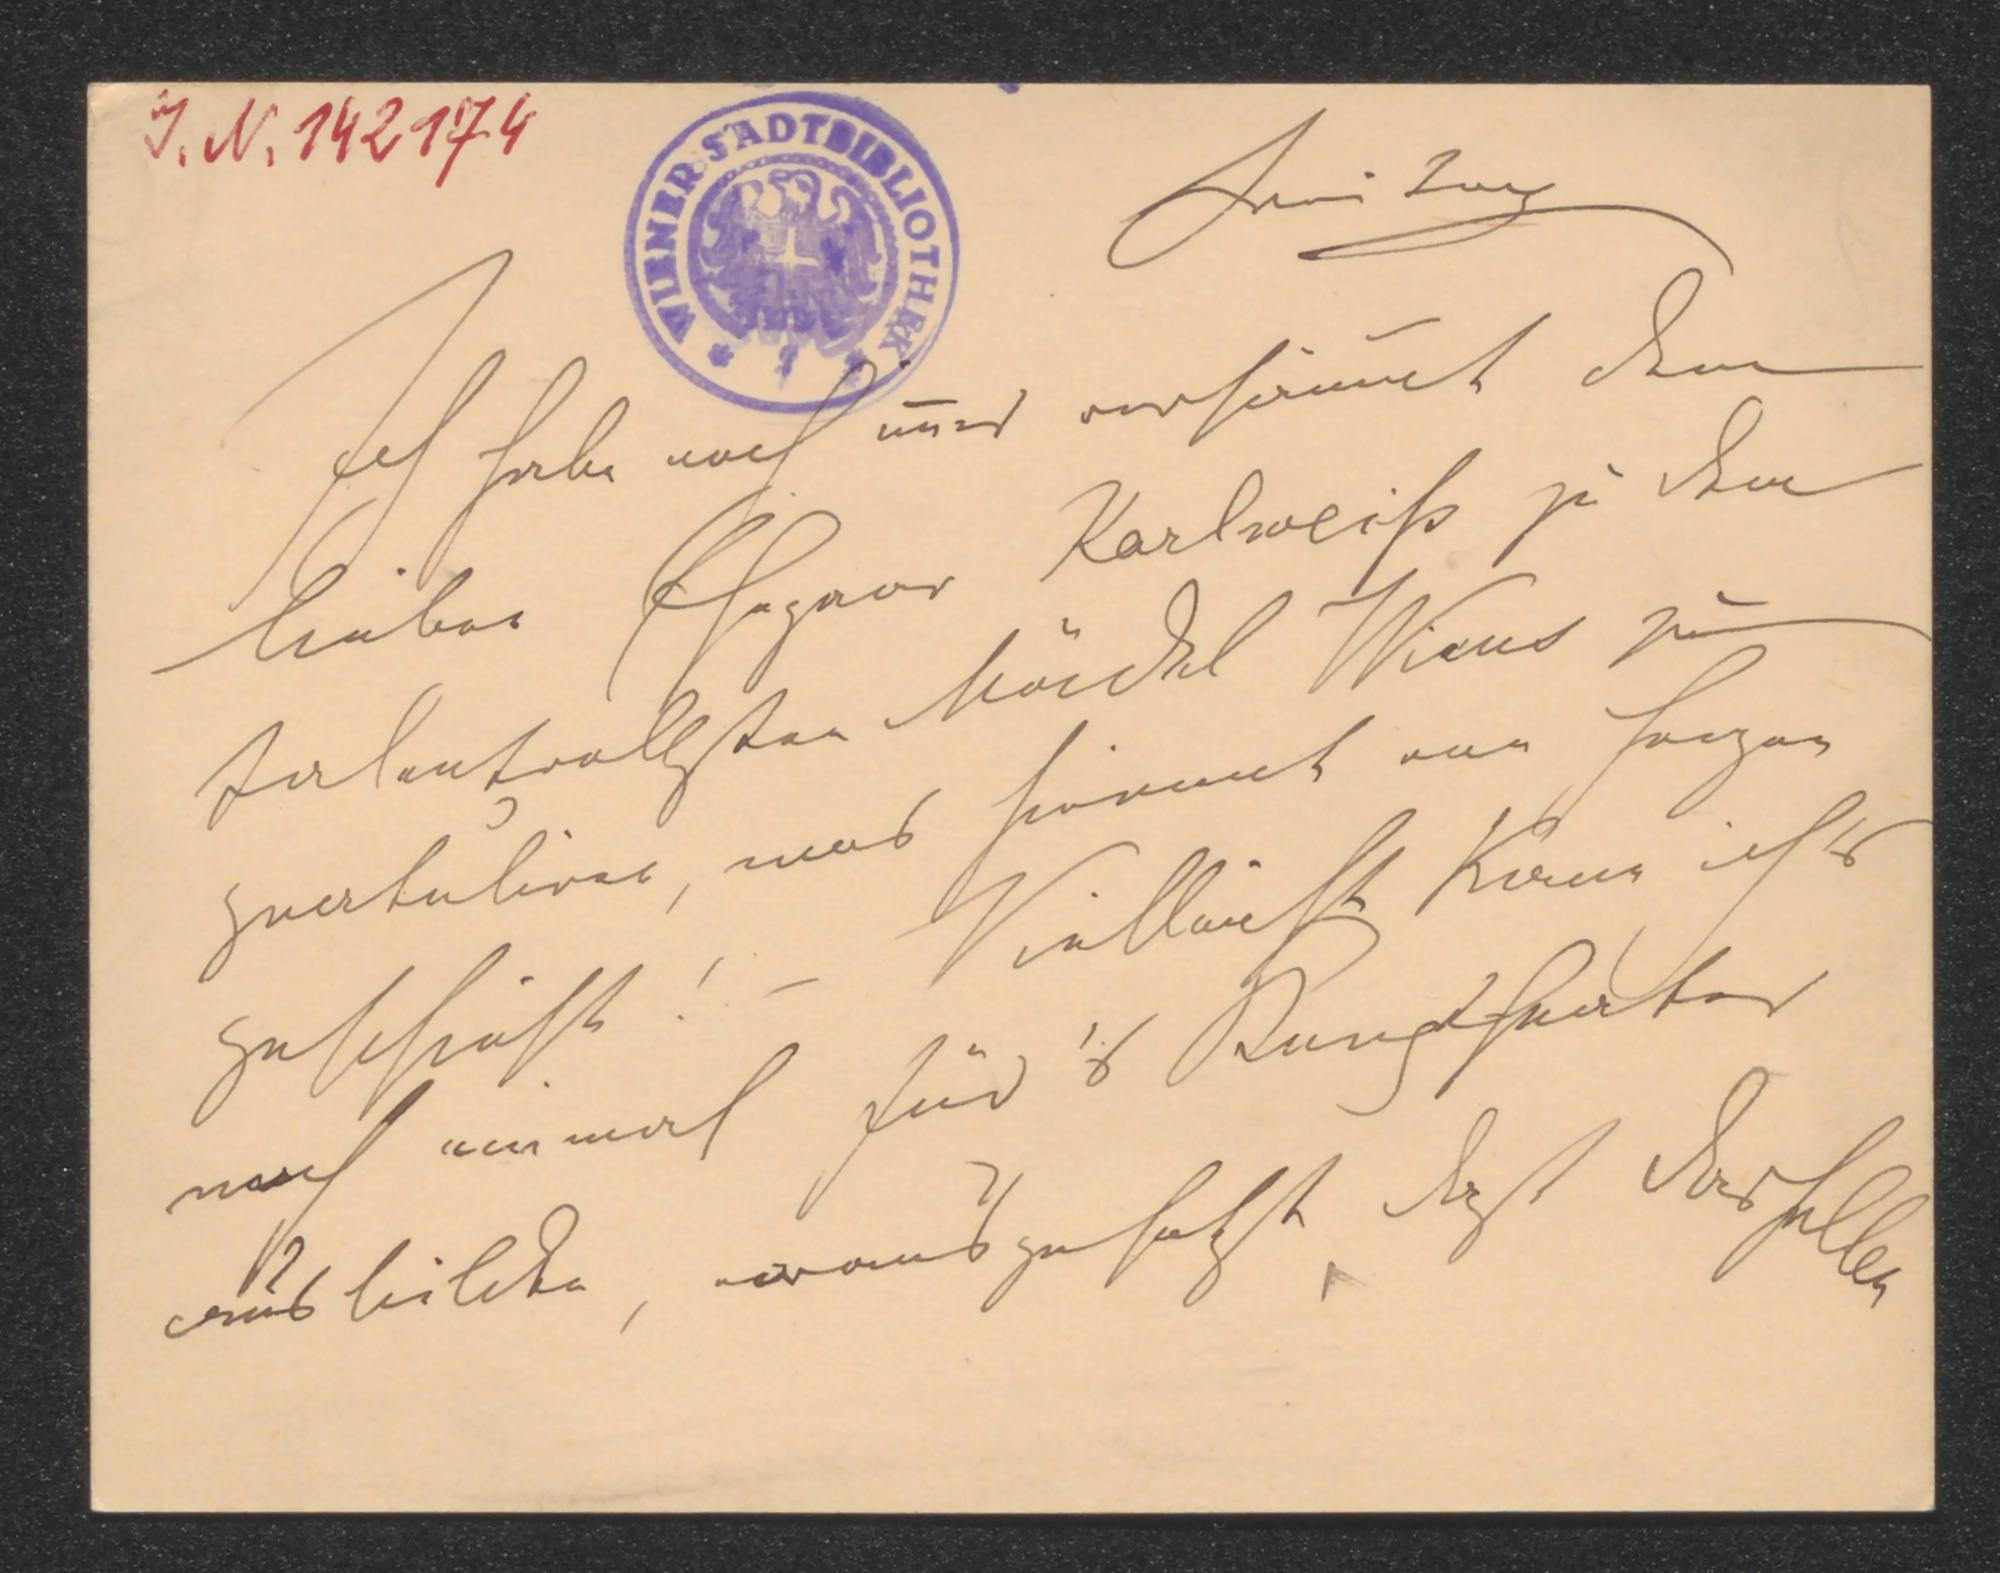 J. N. 142174
WIENER STADTBIBLIOTHEK
Freitag
Ich habe noch im̅er versäum̅t dem
lieben Ehepaar Karlweiß zu dem
talentvollsten Mädel Wiens zu
gratuliren, was hiemit von Herzen
geschieht! – Vielleicht kann ich's
noch einmal für's Burgtheater
ausbilden, vorausgesetzt daß dasselbe